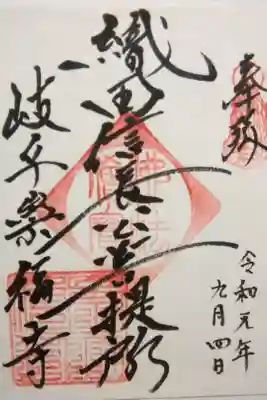 奉拝
令和元年
九月四日
織田信長公菩提所
岐阜崇福寺